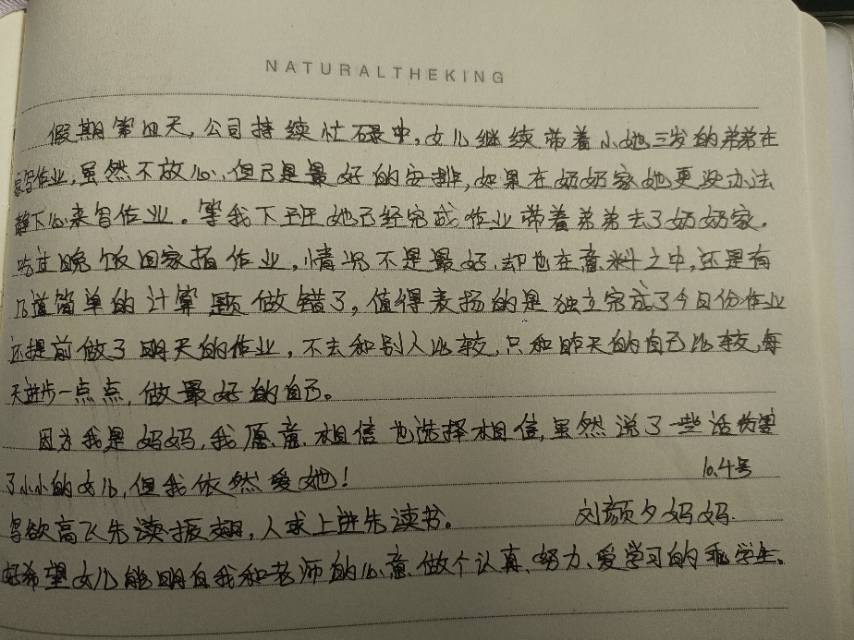 NATURALTHEKING
假期第四天,公司持续忙碌中,女儿继续带着小她三岁的弟弟在
家写作业,虽然不放心,但已是最好的安排,如果在奶奶家她更没办法
静下心来写作业。等我下班她已经完成作业带着弟弟去了奶奶家。
吃过晚饭回家拍作业,情况不是最好,却也在意料之中,还是有
几道简单的计算题做错了,值得表扬的是独立完成了今日份作业
还提前做了明天的作业,不去和别人比较,只和昨天的自己比较,每
天进步一点点,做最好的自己。
因为我是妈妈,我愿意相信也选择相信,虽然说了一些话伤害
了小小的女儿,但我依然爱她!
10.4号
鸟欲高飞先读振翅,人求上进先读书。
刘颜夕妈妈
希望女儿能明白我和老师的心意,做个认真、努力、爱学习的乖学生。